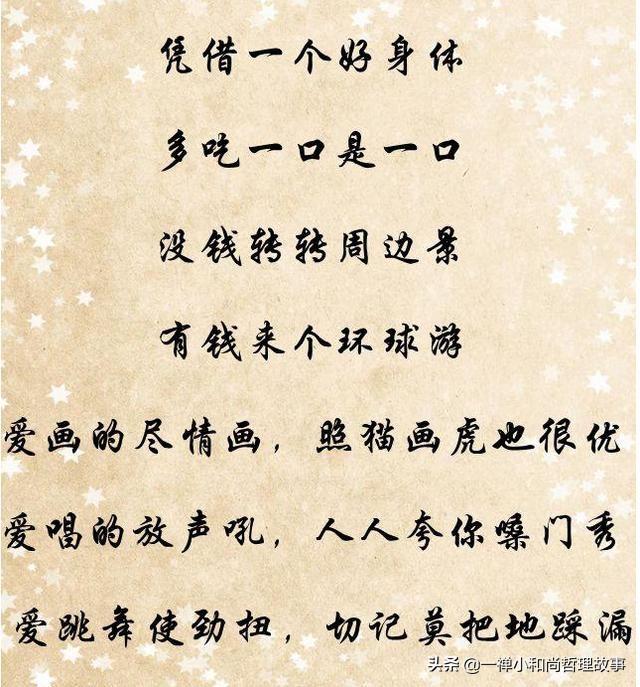 凭借一个好身体
多吃一口是一口
没钱转转周边景
有钱来个环球游
爱画的尽情画，照猫画虎也很优
爱唱的放声吼，人人夸你嗓门秀
爱跳舞使劲扭，切记莫把地踩漏
头条 @一禅小和尚哲理故事